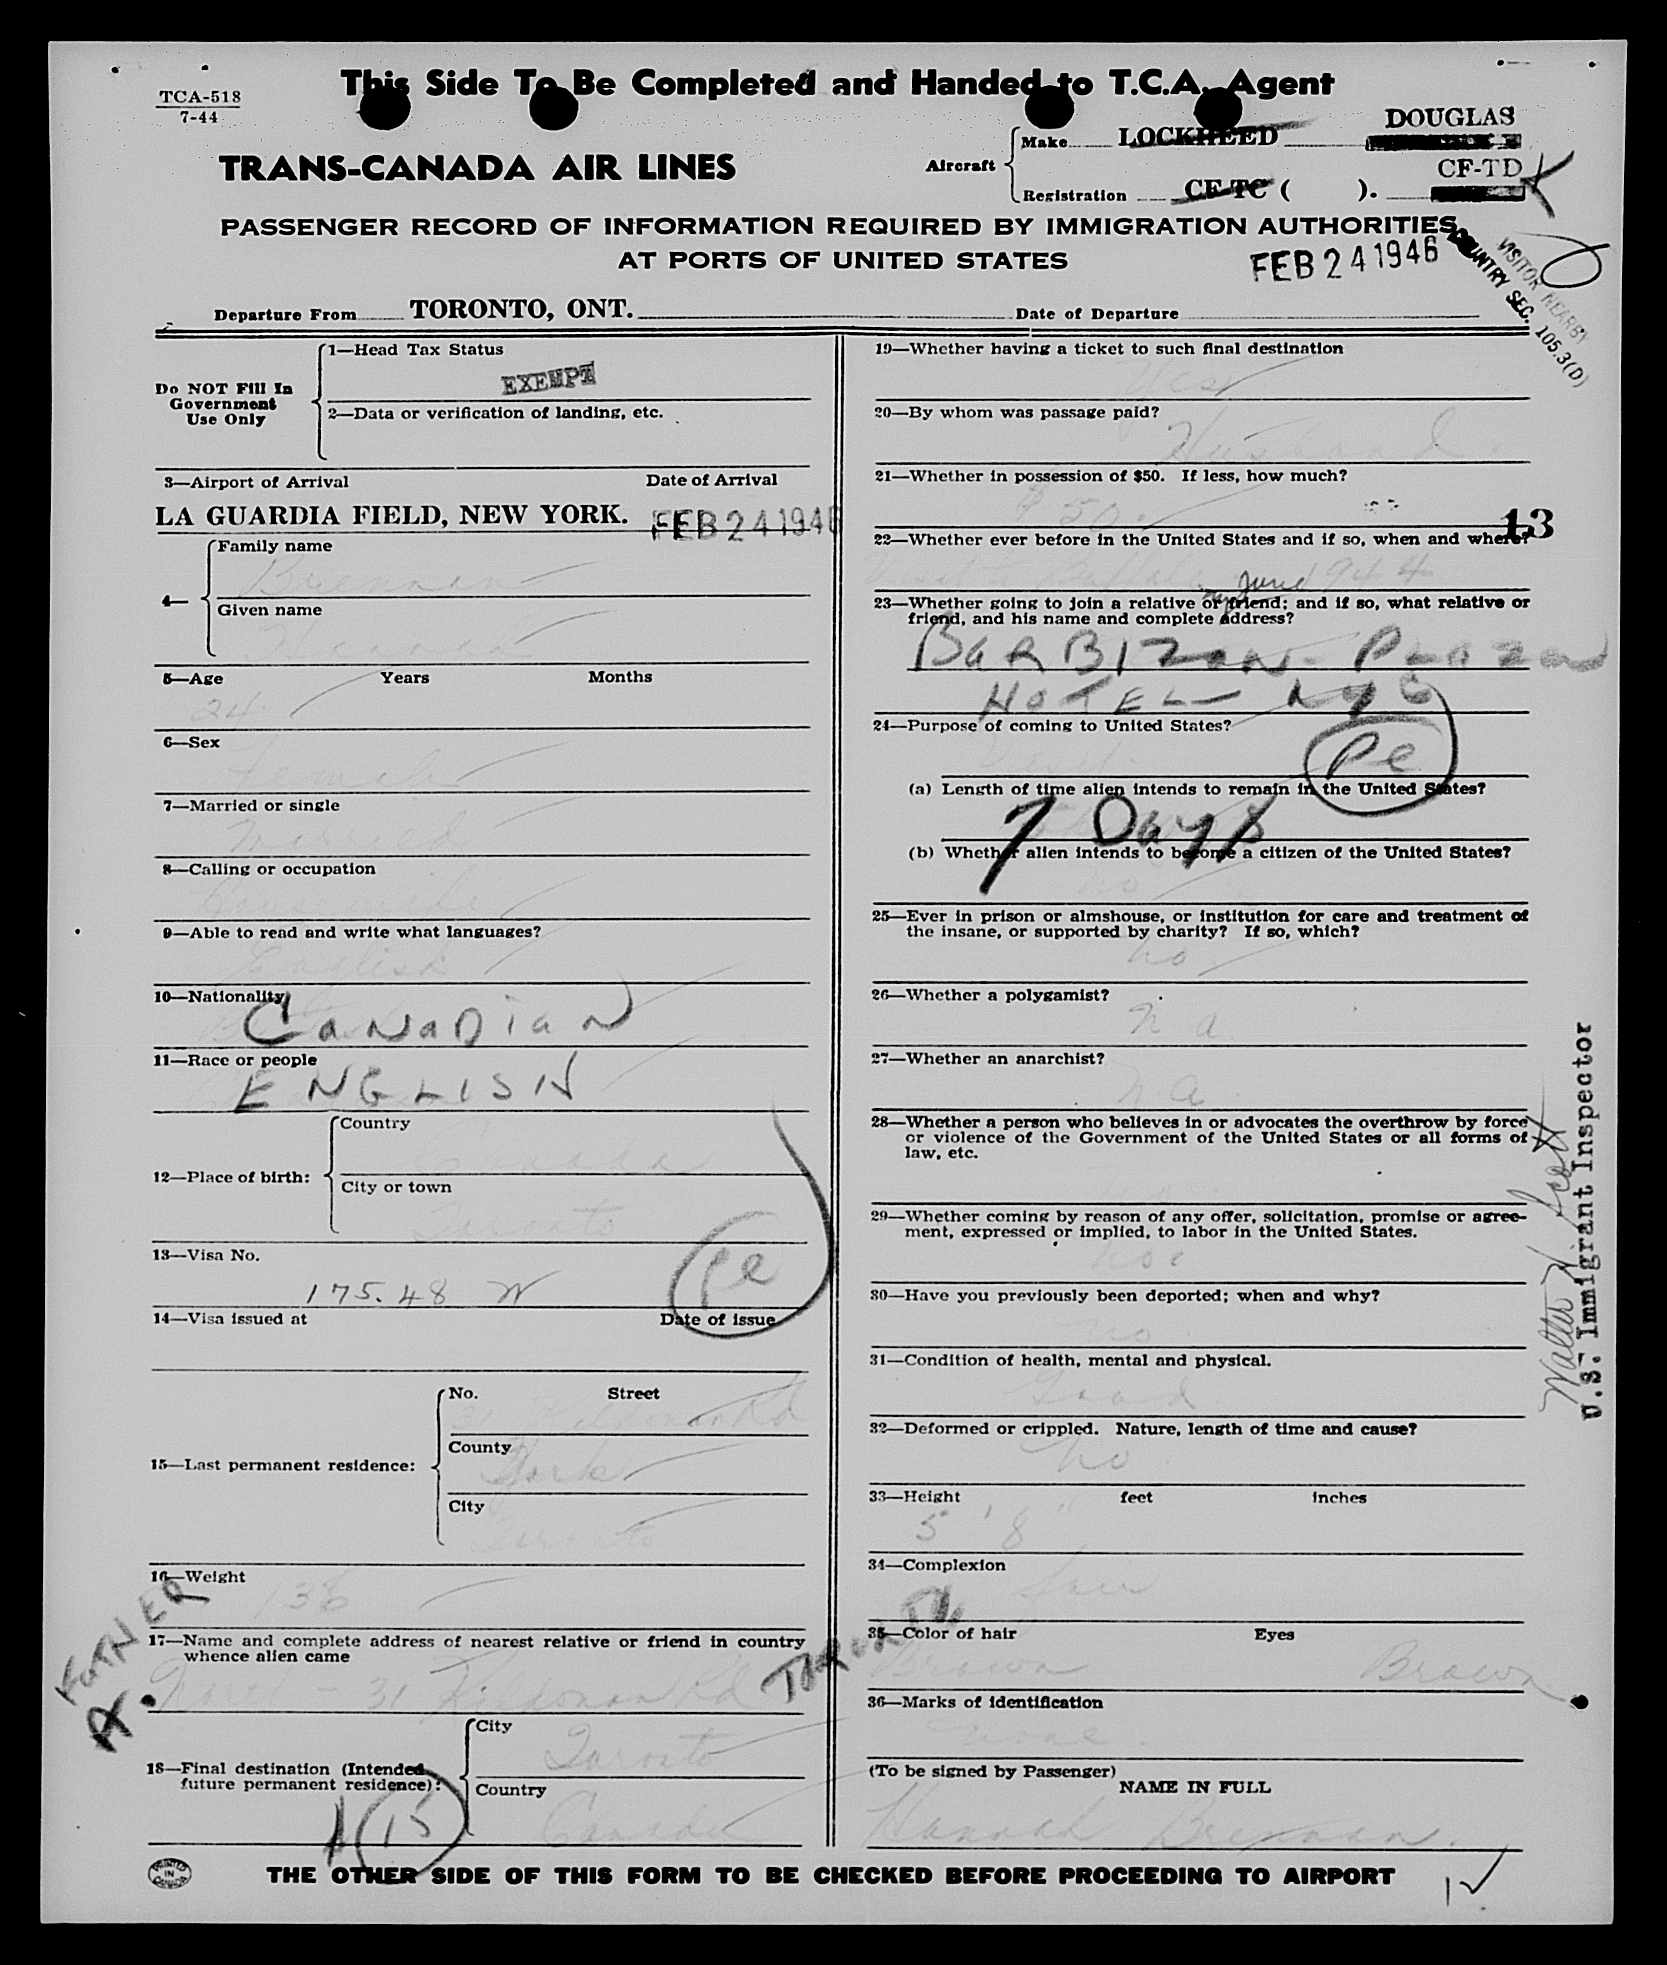 This Side To Be Completed and Handed to T.C.A. Agent
TCA-518
7-44
TRANS-CANADA AIR LINES
Aircraft
Make LOCKHEED DOUGLAS
Registration CF-TC ( ). CF-TD K
PASSENGER RECORD OF INFORMATION REQUIRED BY IMMIGRATION AUTHORITIES
AT PORTS OF UNITED STATES
FEB 24 1946
VISITOR NEARBY
COUNTRY SEC. 105.3(D)
Departure From TORONTO, ONT. Date of Departure
Do NOT Fill In
Government
Use Only
1—Head Tax Status
EXEMPT
2—Data or verification of landing, etc.
3—Airport of Arrival Date of Arrival
LA GUARDIA FIELD, NEW YORK. FEB 24 1946
4—
Family name
Brennan
Given name
Hannah
5—Age Years Months
24
6—Sex
Female
7—Married or single
Married
8—Calling or occupation
Housewife
9—Able to read and write what languages?
English
10—Nationality
CANADIAN
11—Race or people
ENGLISH
12—Place of birth:
Country
Canada
City or town
Toronto
13—Visa No.
175.48 W
Pe
14—Visa issued at Date of issue
15—Last permanent residence:
No. Street
31 Kildonan Rd
County
York
City
Toronto
16—Weight
136
17—Name and complete address of nearest relative or friend in country
whence alien came
31 Kildonan Rd TORONTO
18—Final destination (Intended
future permanent residence):
City
Toronto
Country
Canada
15
19—Whether having a ticket to such final destination
Yes
20—By whom was passage paid?
Husband
21—Whether in possession of $50. If less, how much?
$50.
13
22—Whether ever before in the United States and if so, when and where?
Buffalo June 1944
23—Whether going to join a relative or friend; and if so, what relative or
friend, and his name and complete address?
BARBIZON-PLAZA
HOTEL - NYC
24—Purpose of coming to United States?
Visit
Pe
(a) Length of time alien intends to remain in the United States?
7 Days
(b) Whether alien intends to become a citizen of the United States?
no
25—Ever in prison or almshouse, or institution for care and treatment of
the insane, or supported by charity? If so, which?
no
26—Whether a polygamist?
n a
27—Whether an anarchist?
n a
28—Whether a person who believes in or advocates the overthrow by force
or violence of the Government of the United States or all forms of
law, etc.
29—Whether coming by reason of any offer, solicitation, promise or agree-
ment, expressed or implied, to labor in the United States.
no
30—Have you previously been deported; when and why?
no
31—Condition of health, mental and physical.
Good
32—Deformed or crippled. Nature, length of time and cause?
no
33—Height feet inches
5' 8"
34—Complexion
Fair
35—Color of hair Eyes
Brown Brown
36—Marks of identification
none
(To be signed by Passenger)
NAME IN FULL
Hannah Brennan.
Walter Scott
U.S. Immigrant Inspector
PRINTED
IN
CANADA
THE OTHER SIDE OF THIS FORM TO BE CHECKED BEFORE PROCEEDING TO AIRPORT